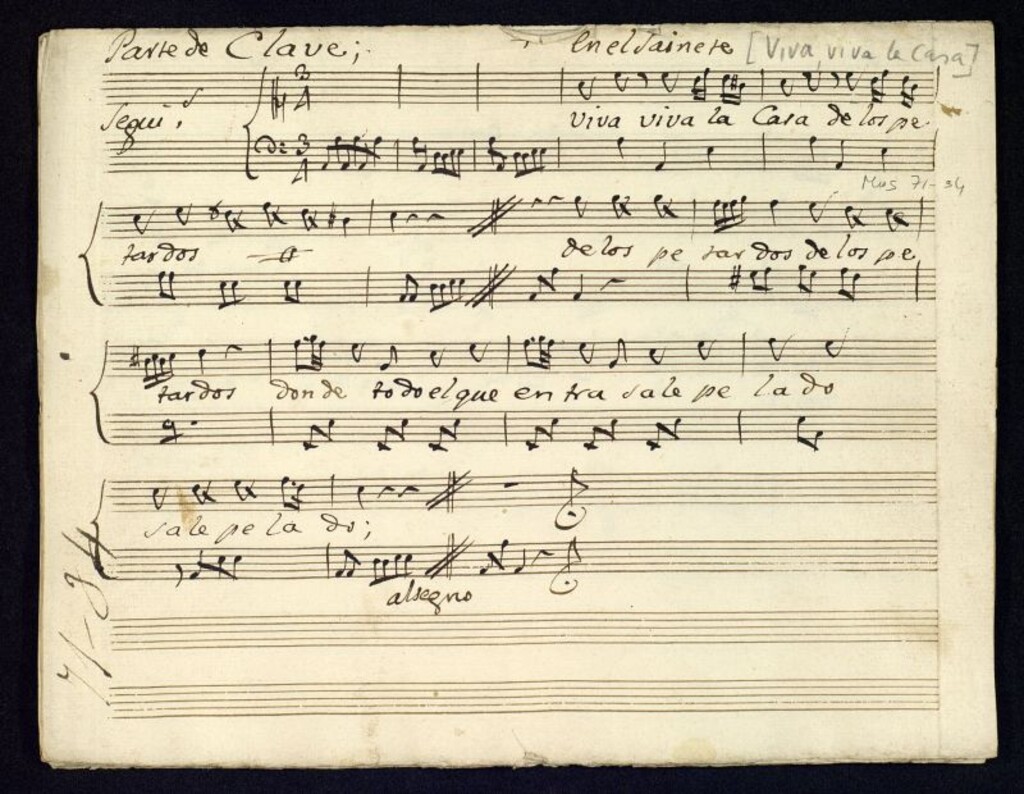 Parte de Clave;
En el Sainete [Viva, viva la Casa]
Segui.s
3
4
3
4
viva viva la Casa de los pe
Mus 71-34
tardos de los pe tardos de los pe
tardos donde todo el que entra sale pe la do
sale pe la do;
al segno
71-34